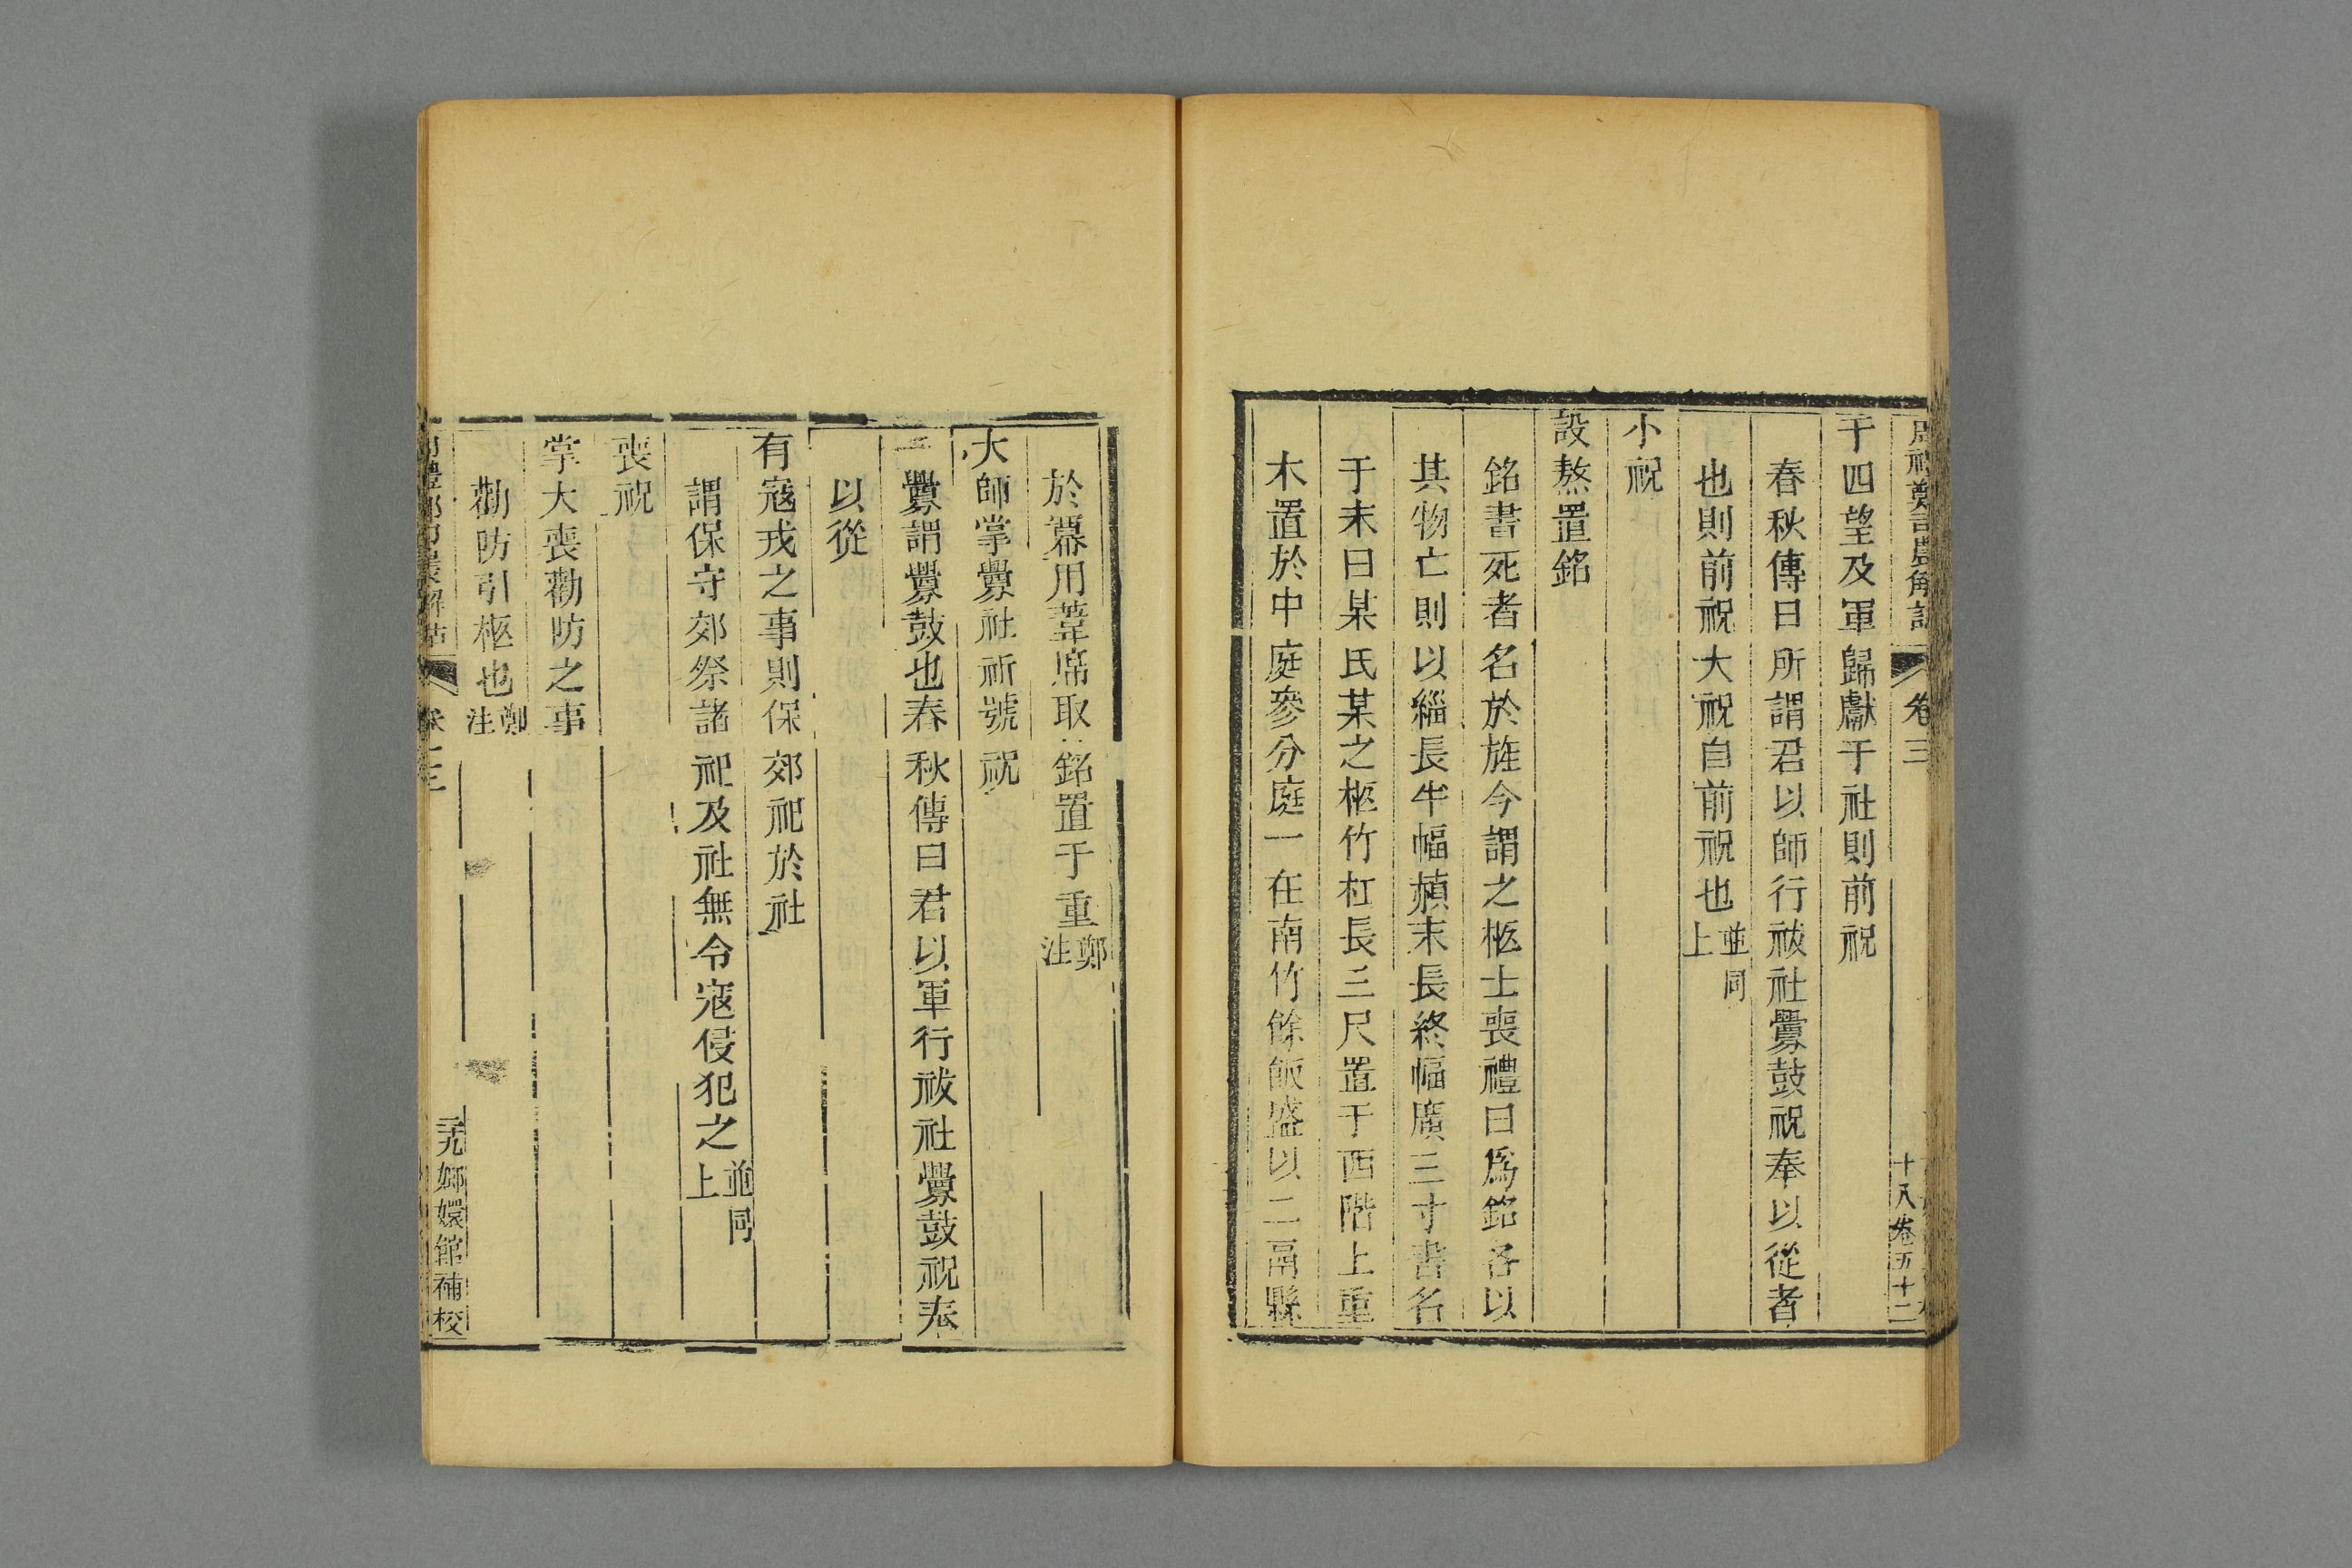 周禮鄭司農解詁 卷三 十八卷五十二
于四望及軍歸獻于社則前祝
春秋傳曰所謂君以師行祓社釁鼓祝奉以從者
也則前祝大祝自前祝也並同上
小祝
設熬置銘
銘書死者名於旌今謂之柩士喪禮曰爲銘各以
其物亡則以緇長半幅䞓末長終幅廣三寸書名
于末曰某氏某之柩竹杠長三尺置于西階上重
木置於中庭參分庭一在南竹餘飯盛以二鬲縣
於冪用葦席取銘置于重鄭注
大師掌釁社祈號祝
釁謂釁鼓也春秋傳曰君以軍行祓社釁鼓祝奉
以從
有寇戎之事則保郊祀於社
謂保守郊祭諸祀及社無令寇侵犯之並同上
喪祝
掌大喪勸防之事
勸防引柩也鄭注
周禮鄭司農解詁 卷三 嫏嬛館補校